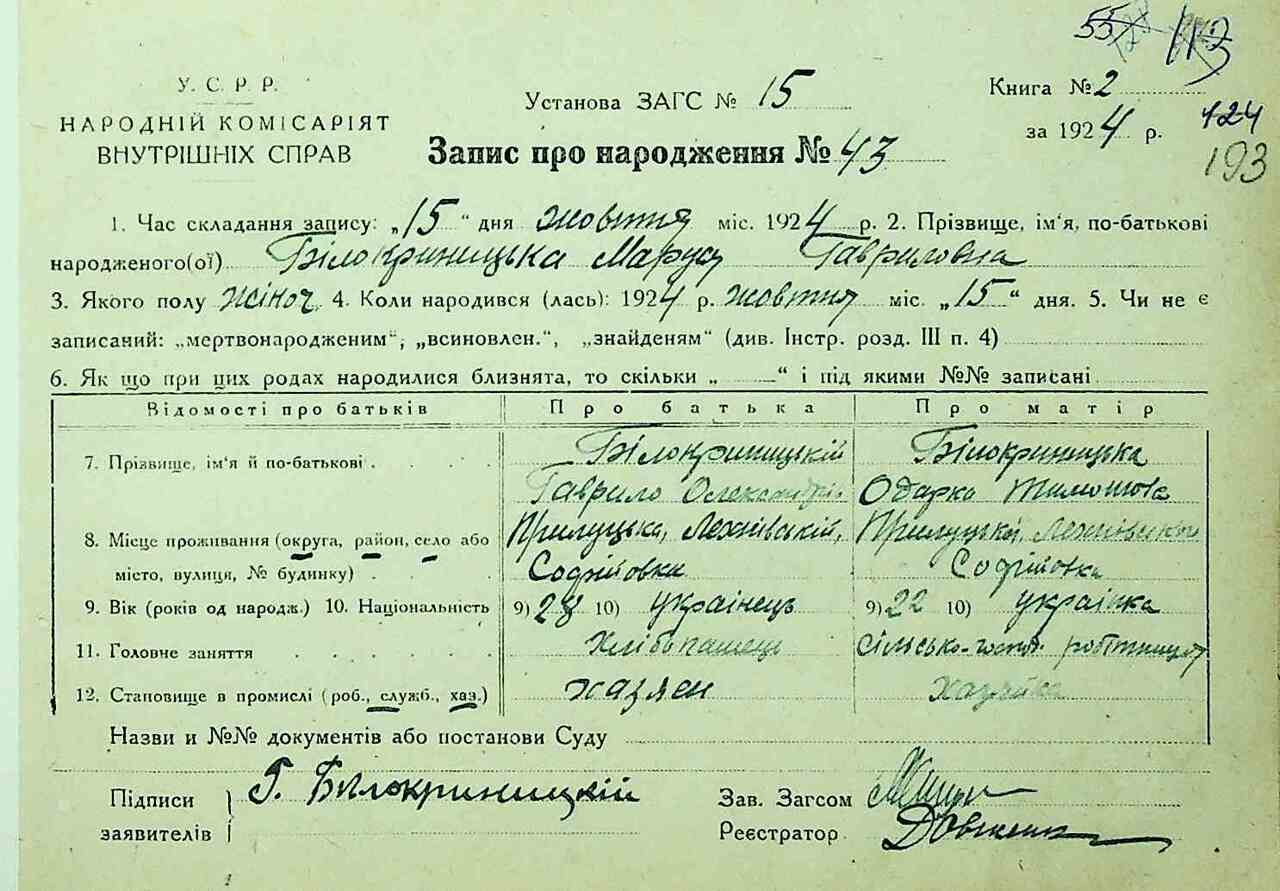 55 113
У. С. Р. Р.
НАРОДНІЙ КОМІСАРІЯТ
ВНУТРІШНІХ СПРАВ
Установа ЗАГС № 15
Книга № 2
за 1924 р.
124
193
Запис про народження № 43
1. Час складання запису: „15“ дня жовтня міс. 1924 р. 2. Прізвище, ім'я, по-батькові
народженого(ої) Білокриницька Маруся Гавриловна
3. Якого полу жіноч. 4. Коли народився (лась): 1924 р. жовтня міс. „15“ дня. 5. Чи не є
записаний: „мертвонародженим“, „всиновлен.“, „знайденям“ (див. Інстр. розд. III п. 4)
6. Як що при цих родах народилися близнята, то скільки „ “ і під якими №№ записані
Відомості про батьків Про батька Про матір
7. Прізвище, ім'я й по-батькові Білокриницькій Білокриницька
Гаврило Олександрів. Одарка Тимошова
8. Місце проживання (округа, район, село або Прилуцька, Лехнівській, Прилуцькій,
місто, вулиця, № будинку) Софіїовка Софіїовка
9. Вік (років од народж.) 10. Національність 9) 28 10) українець 9) 22 10) українка
11. Головне заняття Хлібопашець сільсько-госп. робітниця
12. Становище в промислі (роб., служб., хаз.) хазяен хазяйка
Назви и №№ документів або постанови Суду
Підписи
заявителів
Г. Білокриницкій
Зав. Загсом
Реєстратор Довженко